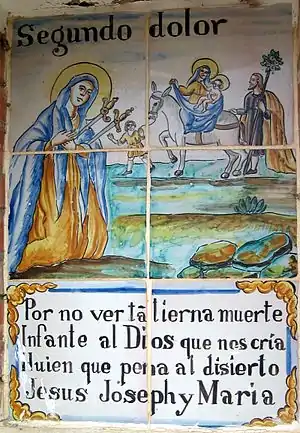 Segundo dolor
Por no ver tã tierna muerte
Infante al Dios que nes cria
Huien que pena al disierto
Jesus Joseph y Maria